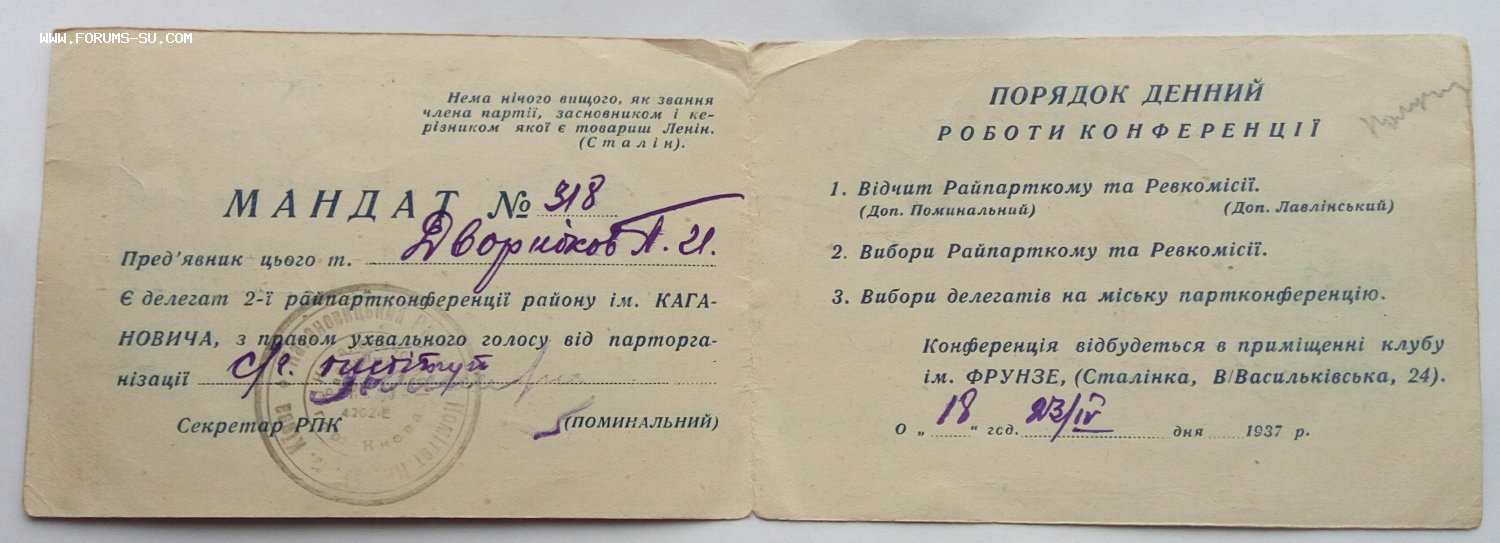 WWW.FORUMS-SU.COM
Нема нічого вищого, як звання
члена партії, засновником і ке-
різником якої є товариш Ленін.
(Сталін).
МАНДАТ № 318
Пред'явник цього т. Дворніков П. И.
Є делегат 2-ї райпартконференції району ім. КАГА-
НОВИЧА, з правом ухвального голосу від парторга-
нізації с/г. інститут
Секретар РПК (ПОМИНАЛЬНИЙ)
4202-Е
ПОРЯДОК ДЕННИЙ
РОБОТИ КОНФЕРЕНЦІЇ
1. Відчит Райпарткому та Ревкомісії.
(Доп. Поминальний) (Доп. Лавлінський)
2. Вибори Райпарткому та Ревкомісії.
3. Вибори делегатів на міську партконференцію.
Конференція відбудеться в приміщенні клубу
ім. ФРУНЗЕ, (Сталінка, В/Васильківська, 24).
О „ 18 “ год. 23/IV дня 1937 р.